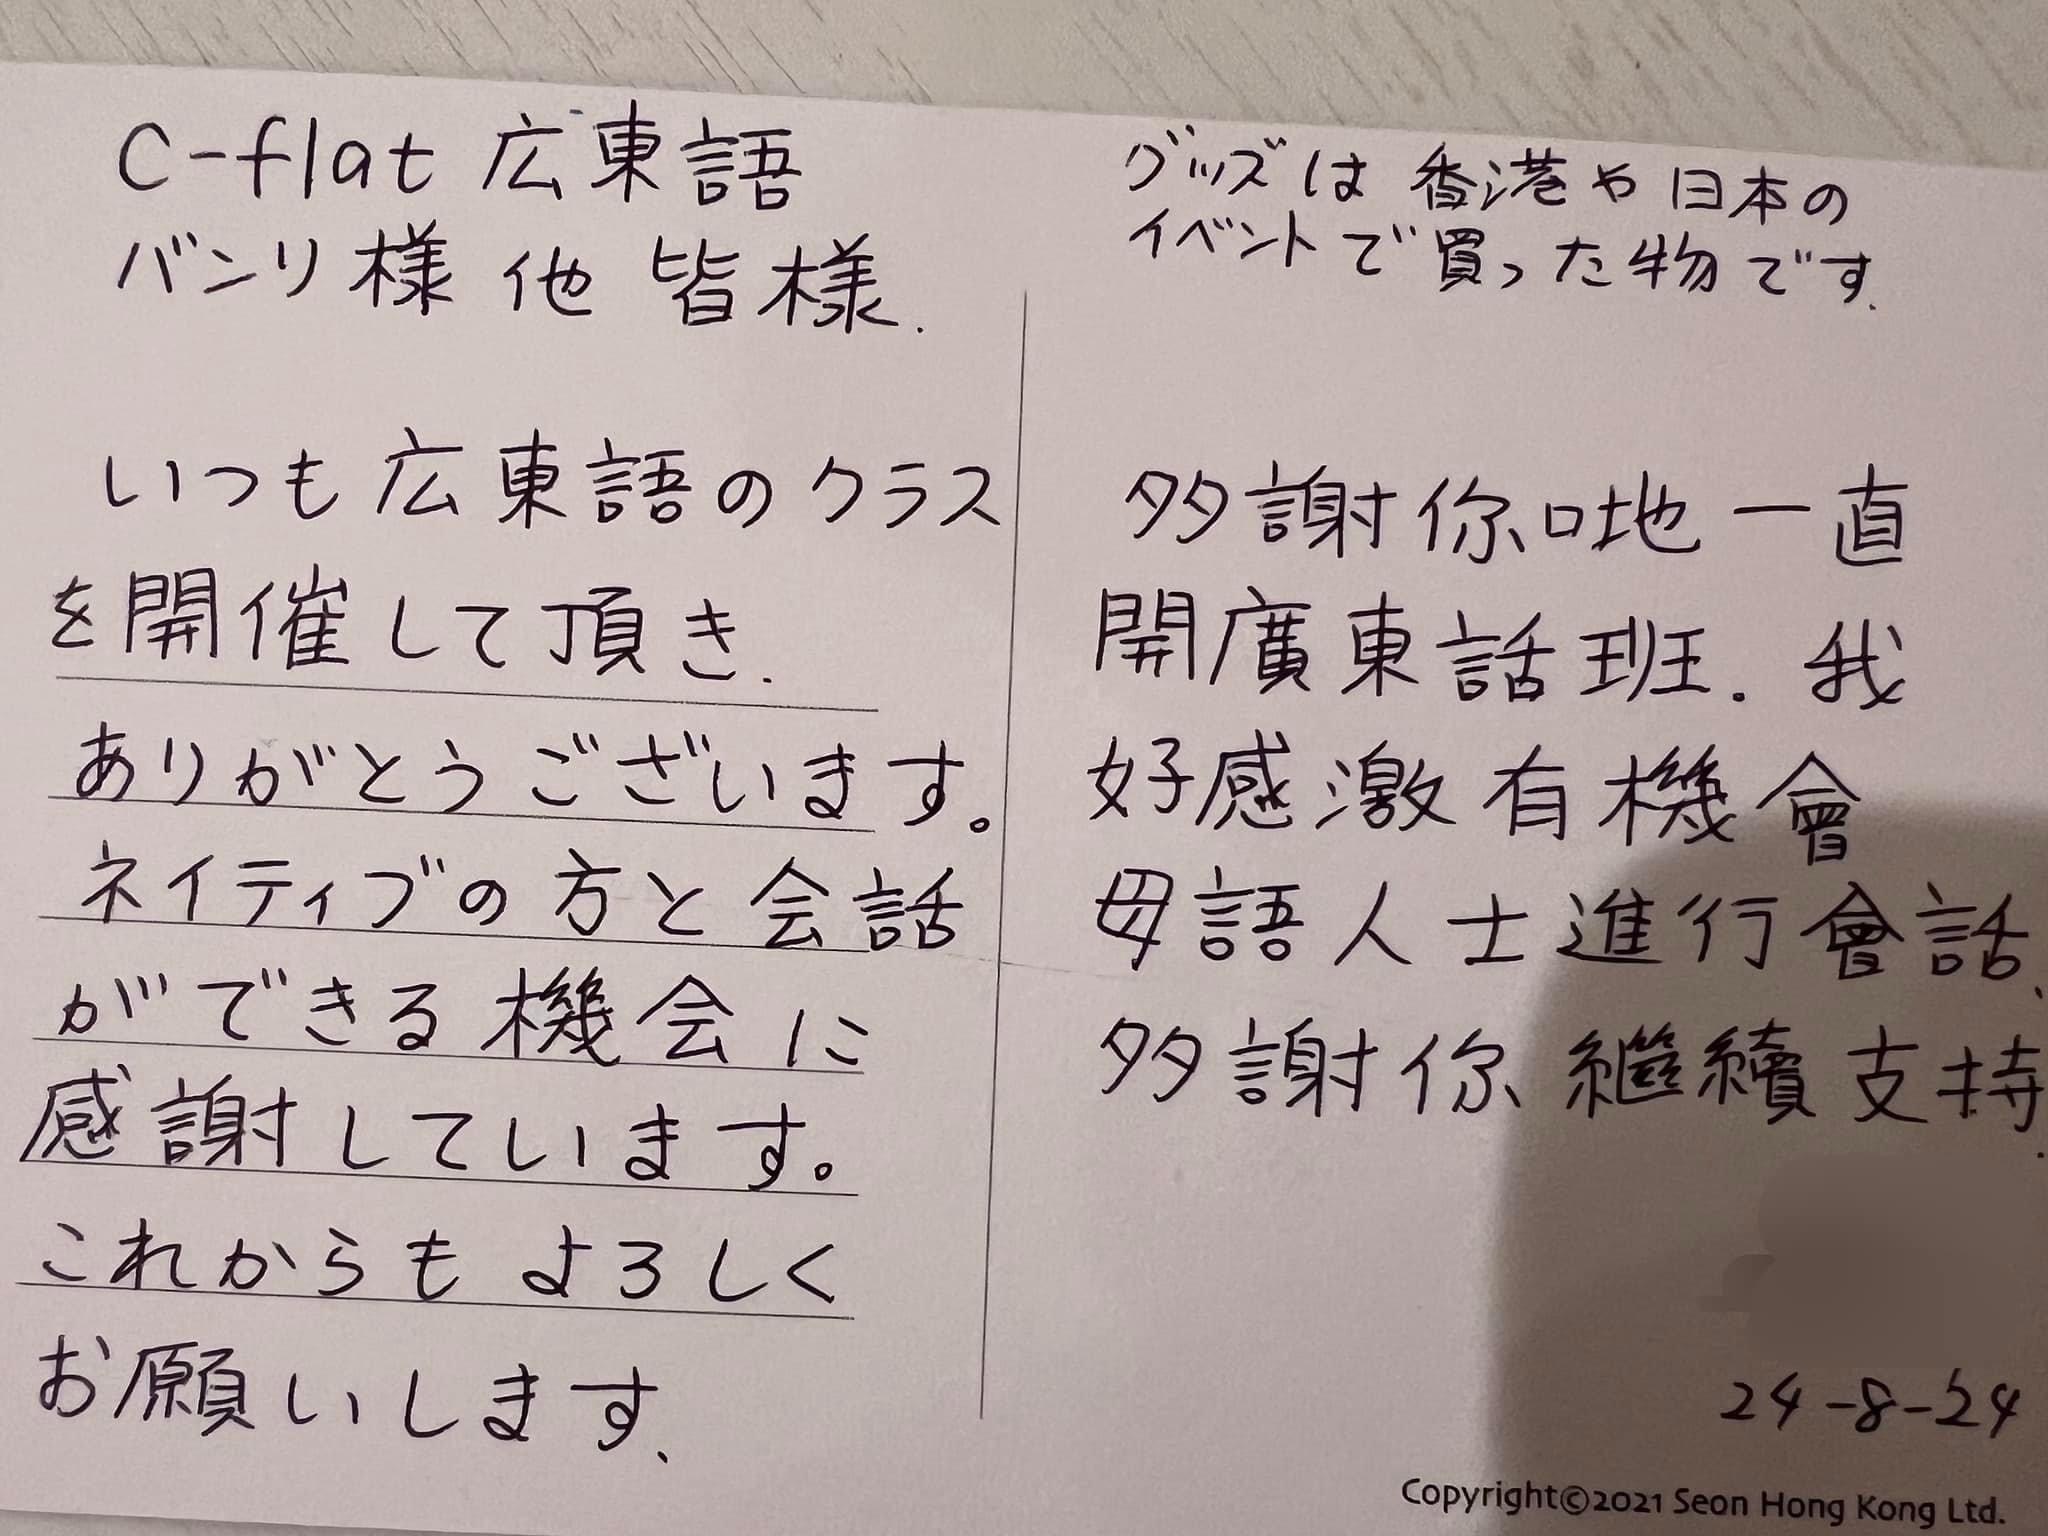 C-flat 広東語
バンリ様 他 皆様.
いつも広東語のクラス
を開催して頂き.
ありがとうございます。
ネイティブの方と会話
ができる機会に
感謝しています。
これからもよろしく
お願いします.
グッズは香港や日本の
イベントで買った物です.
多謝你哋一直
開廣東話班. 我
好感激有機會
母語人士進行會話.
多謝你繼續支持.
24-8-24
Copyright©2021 Seon Hong Kong Ltd.